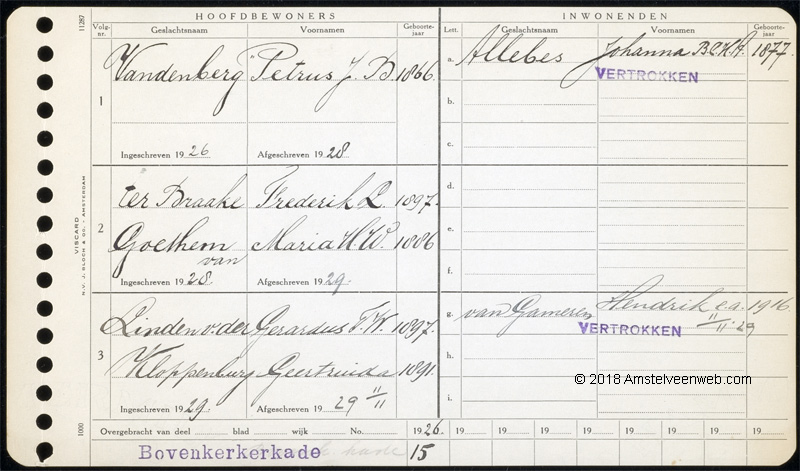 HOOFDBEWONERS
INWONENDEN
Volg-nr.
Geslachtsnaam
Voornamen
Geboorte-jaar
Lett.
Geslachtsnaam
Voornamen
Geboorte-jaar
11287
1
Vandenberg Petrus J. B. 1866.
Ingeschreven 1926 Afgeschreven 1928
a. Allebes Johanna B.C.H.A. 1877.
VERTROKKEN
b.
c.
2
ter Braake Frederik L. 1897.
Goethem van Maria H.W. 1886
Ingeschreven 1928 Afgeschreven 1929.
d.
e.
f.
VISCARD
N.V. J. BLOCH & CO. - AMSTERDAM
3
Linden v. der Gerardus F.W. 1897.
Kloppenburg Geertruida 1891.
Ingeschreven 1929. Afgeschreven 1929 11/11
g. van Gameren Hendrik e.a. 1916.
VERTROKKEN 11/11 29
h.
i.
© 2018 Amstelveenweb.com
1000
Overgebracht van deel blad wijk No. 1926. 19 19 19 19 19 19 19 19
Bovenkerkerkade 15